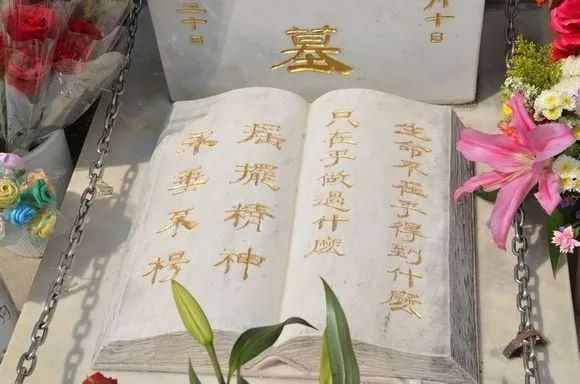 十日
二十日
墓
生命不在乎得到什麼
只在乎做過什麼
搖擺精神
永垂系楊